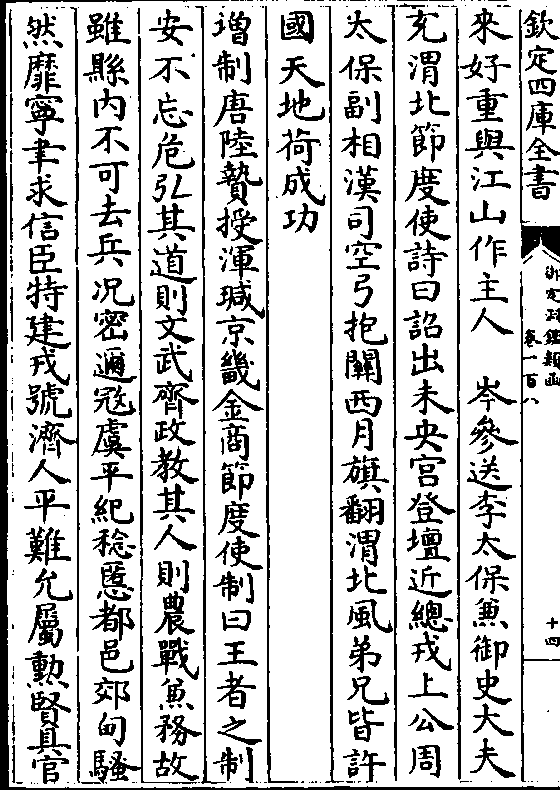 欽定四庫全書
御定淵鑑類函
卷一百八
十四
來好重與江山作主人　岑參送李太保兼御史大夫
充渭北節度使詩曰詔出未央宫登壇近總戎上公周
太保副相漢司空弓抱關西月旗翻渭北風弟兄皆許
國天地荷成功
增制唐陸贄授渾瑊京畿金商節度使制曰王者之制
安不忘危弘其道則文武齊政教其人則農戰兼務故
雖縣内不可去兵况密邇寇虞平紀稔慝都邑郊甸騷
然靡寧聿求信臣特建戎號濟人平難允屬勲賢具官